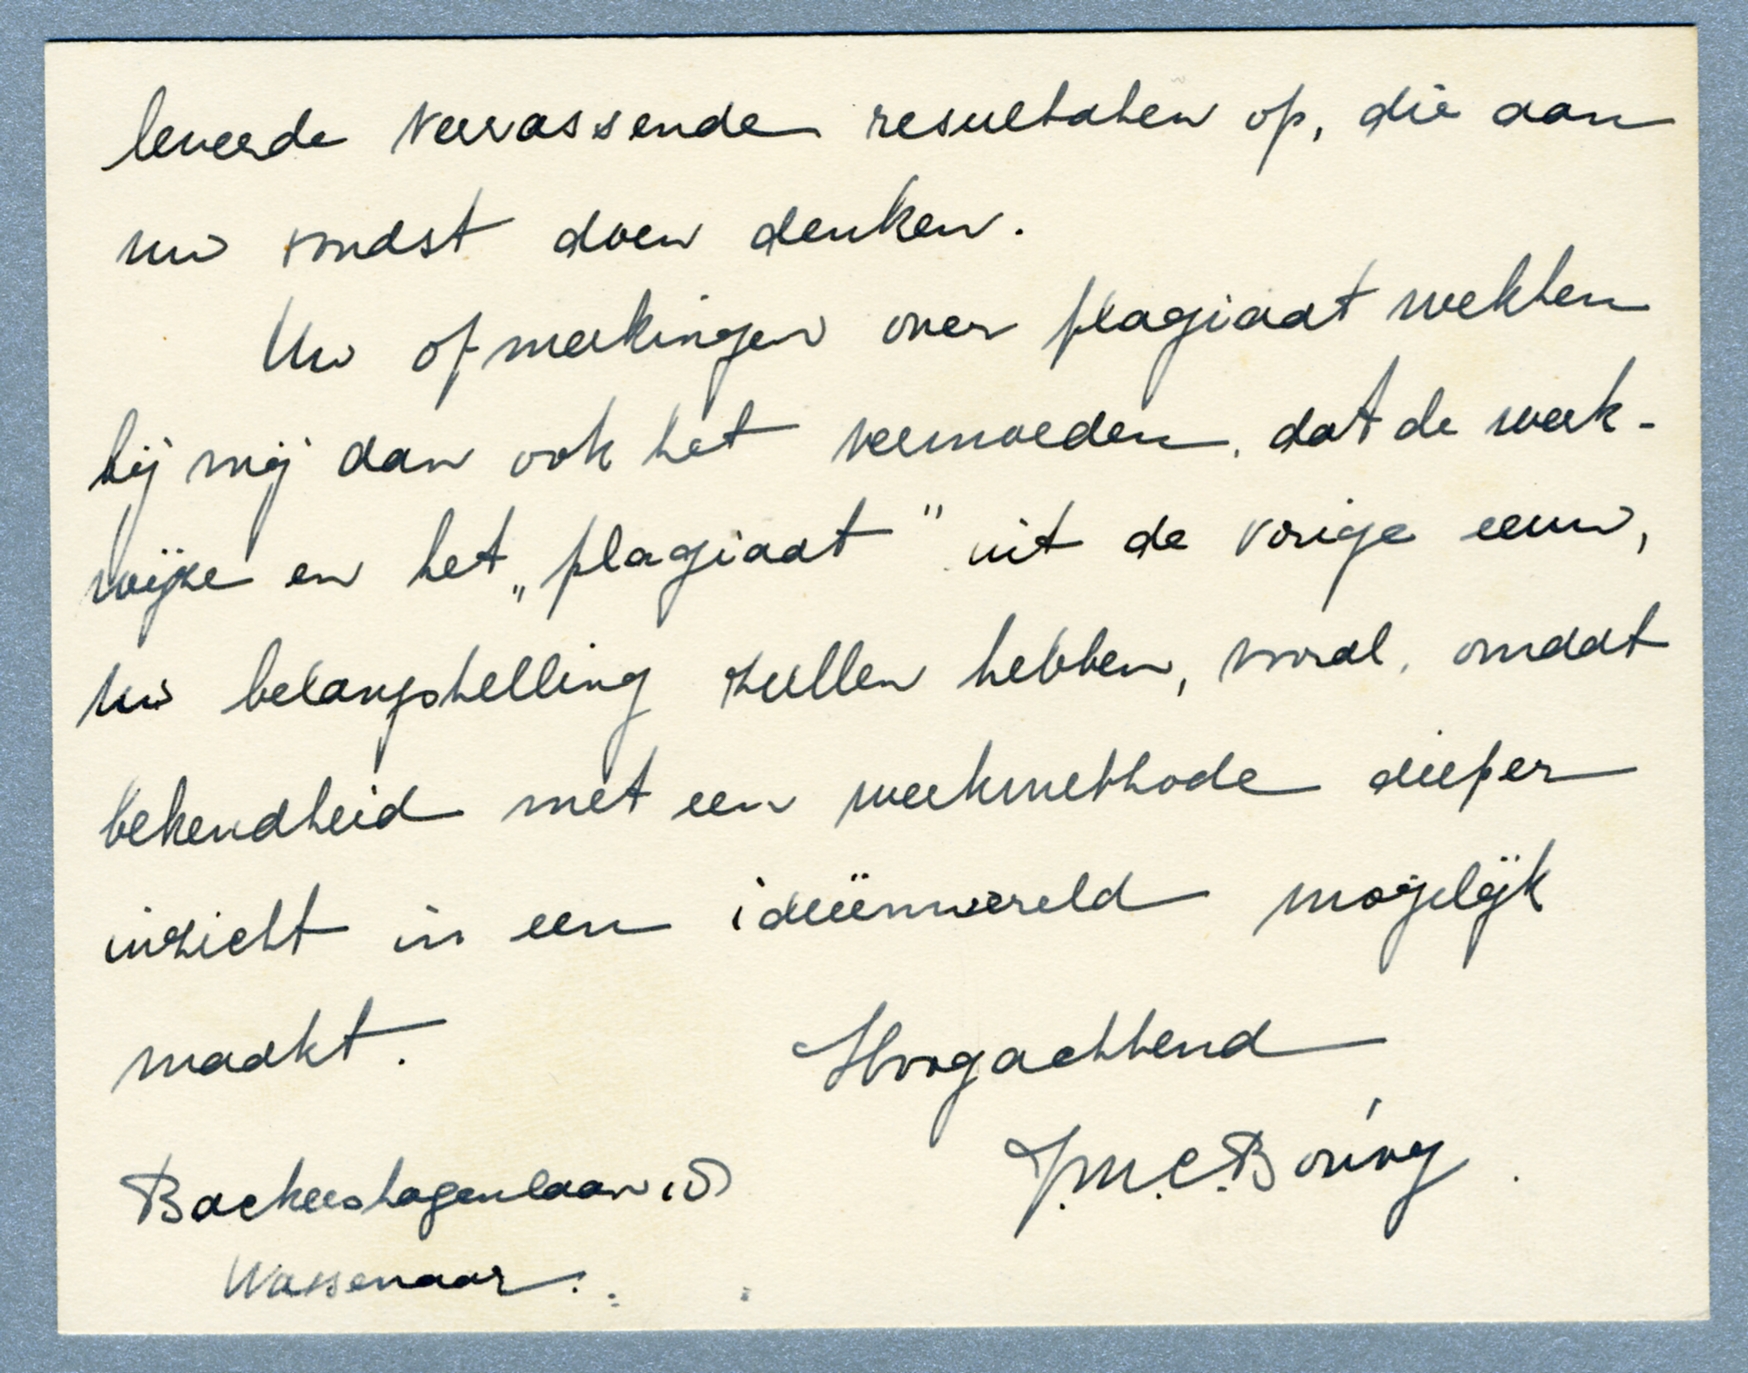 leverde verrassende resultaten op, die aan
uw vondst doen denken.
Uw opmerkingen over plagiaat wekten
bij mij dan ook het vermoeden, dat de werk-
wijze en het „plagiaat" uit de vorige eeuw,
Uw belangstelling zullen hebben, vooral, omdat
bekendheid met een werkmethode dieper
inzicht in een ideeënwereld mogelijk
maakt.
Hoogachtend
J.M.C. Boúvy.
Backershagenlaan
Wassenaar.